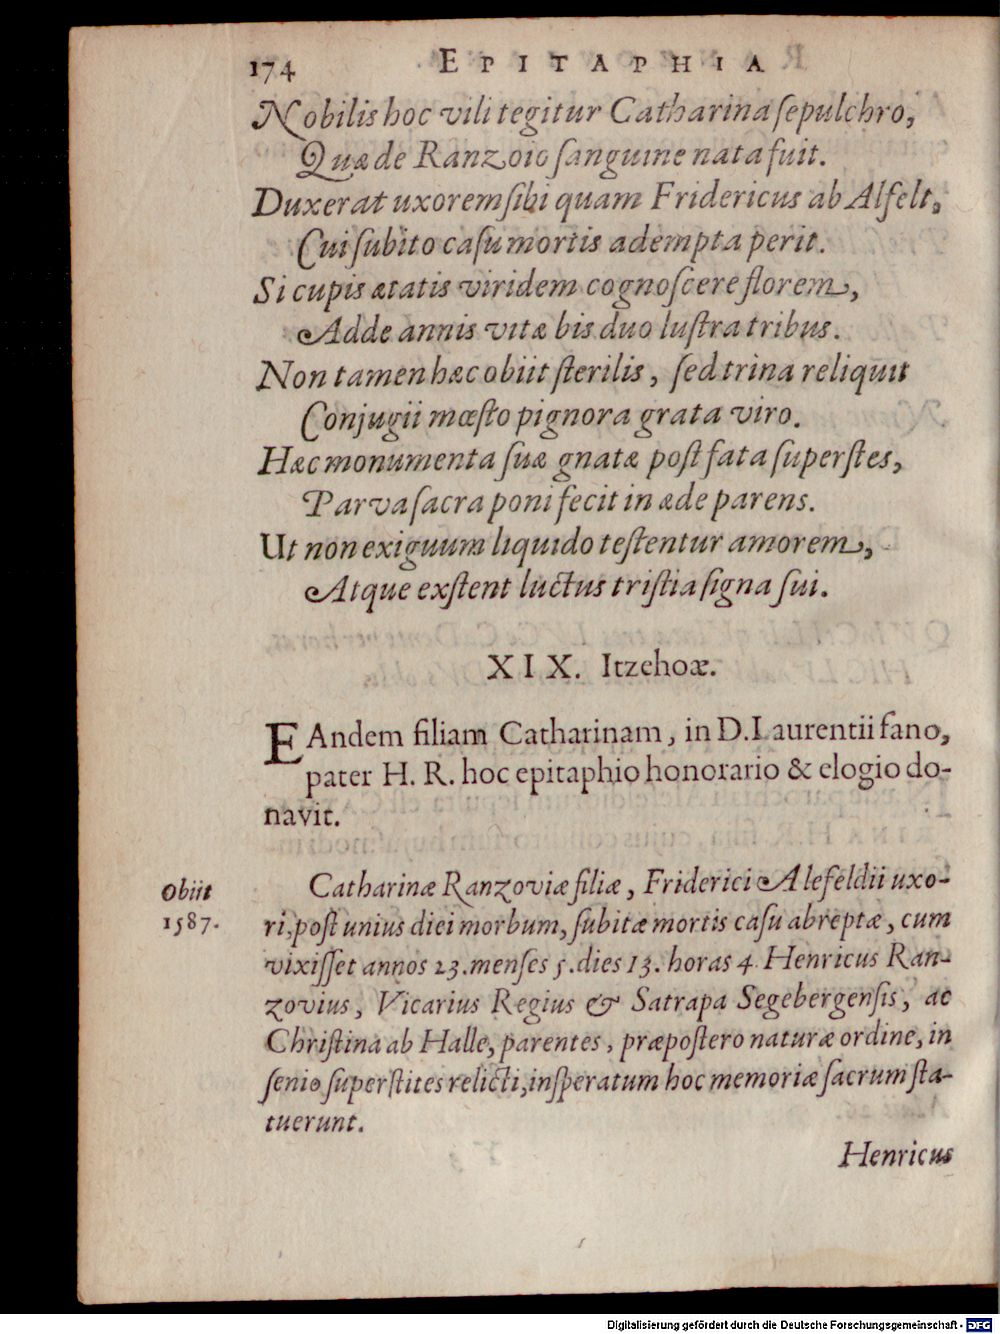 174 EPITAPHIA
Nobilis hoc vili tegitur Catharina ſepulchro,
Quæ de Ranzoio ſanguine nata fuit.
Duxerat uxorem ſibi quam Fridericus ab Alfelt,
Cui ſubito caſu mortis adempta perit.
Si cupis ætatis viridem cognoſcere florem,
Adde annis vitæ bis duo luſtra tribus.
Non tamen hæc obiit ſterilis, ſed trina reliquit
Conjugii mœſto pignora grata viro.
Hæc monumenta ſuæ gnatæ poſt fata ſuperſtes,
Parva ſacra poni fecit in æde parens.
Ut non exiguum liquido teſtentur amorem,
Atque exſtent luctus triſtia ſigna ſui.
XIX. Itzehoæ.
EAndem filiam Catharinam, in D. Laurentii fano,
pater H. R. hoc epitaphio honorario & elogio do-
navit.
Obiit
1587.
Catharinæ Ranzoviæ filiæ, Friderici Alefeldii uxo-
ri, poſt unius diei morbum, ſubitæ mortis caſu abreptæ, cum
vixiſſet annos 23. menſes 5. dies 13. horas 4 Henricus Ran-
zovius, Vicarius Regius & Satrapa Segebergenſis, ac
Chriſtina ab Halle, parentes, præpoſtero naturæ ordine, in
ſenio ſuperſtites relicti, inſperatum hoc memoriæ ſacrum ſta-
tuerunt.
Henricus
Digitalisierung gefördert durch die Deutsche Forschungsgemeinschaft - DFG